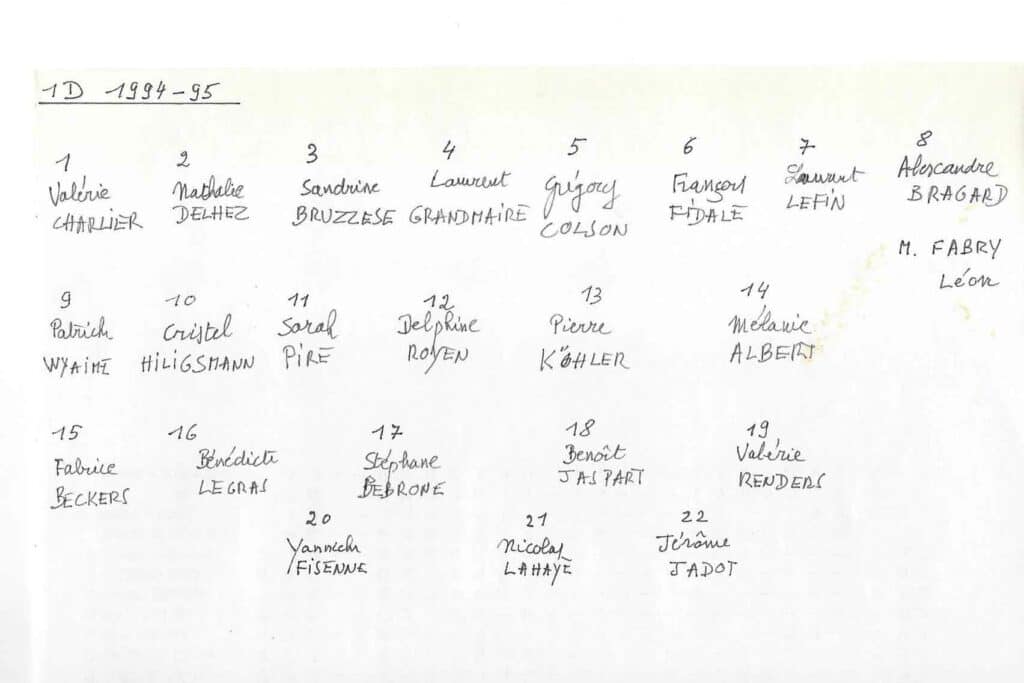 1D 1994-95
1 2 3 4 5 6 7 8
Valérie Nathalie Sandrine Laurent Grégory François Laurent Alexandre
CHARLIER DELHEZ BRUZZESE GRANDMAIRE COLSON FIDALE LEFIN BRAGARD
M. FABRY
Léon
9 10 11 12 13 14
Patrick Cristel Sarah Delphine Pierre Mélanie
WYAIME HILIGSMANN PIRE ROYEN KÖHLER ALBERT
15 16 17 18 19
Fabrice Bénédicte Stéphane Benoît Valérie
BECKERS LEGRAS DEBRONE JASPART RENDERS
20 21 22
Yannick Nicolas Jérôme
FISENNE LAHAYE JADOT